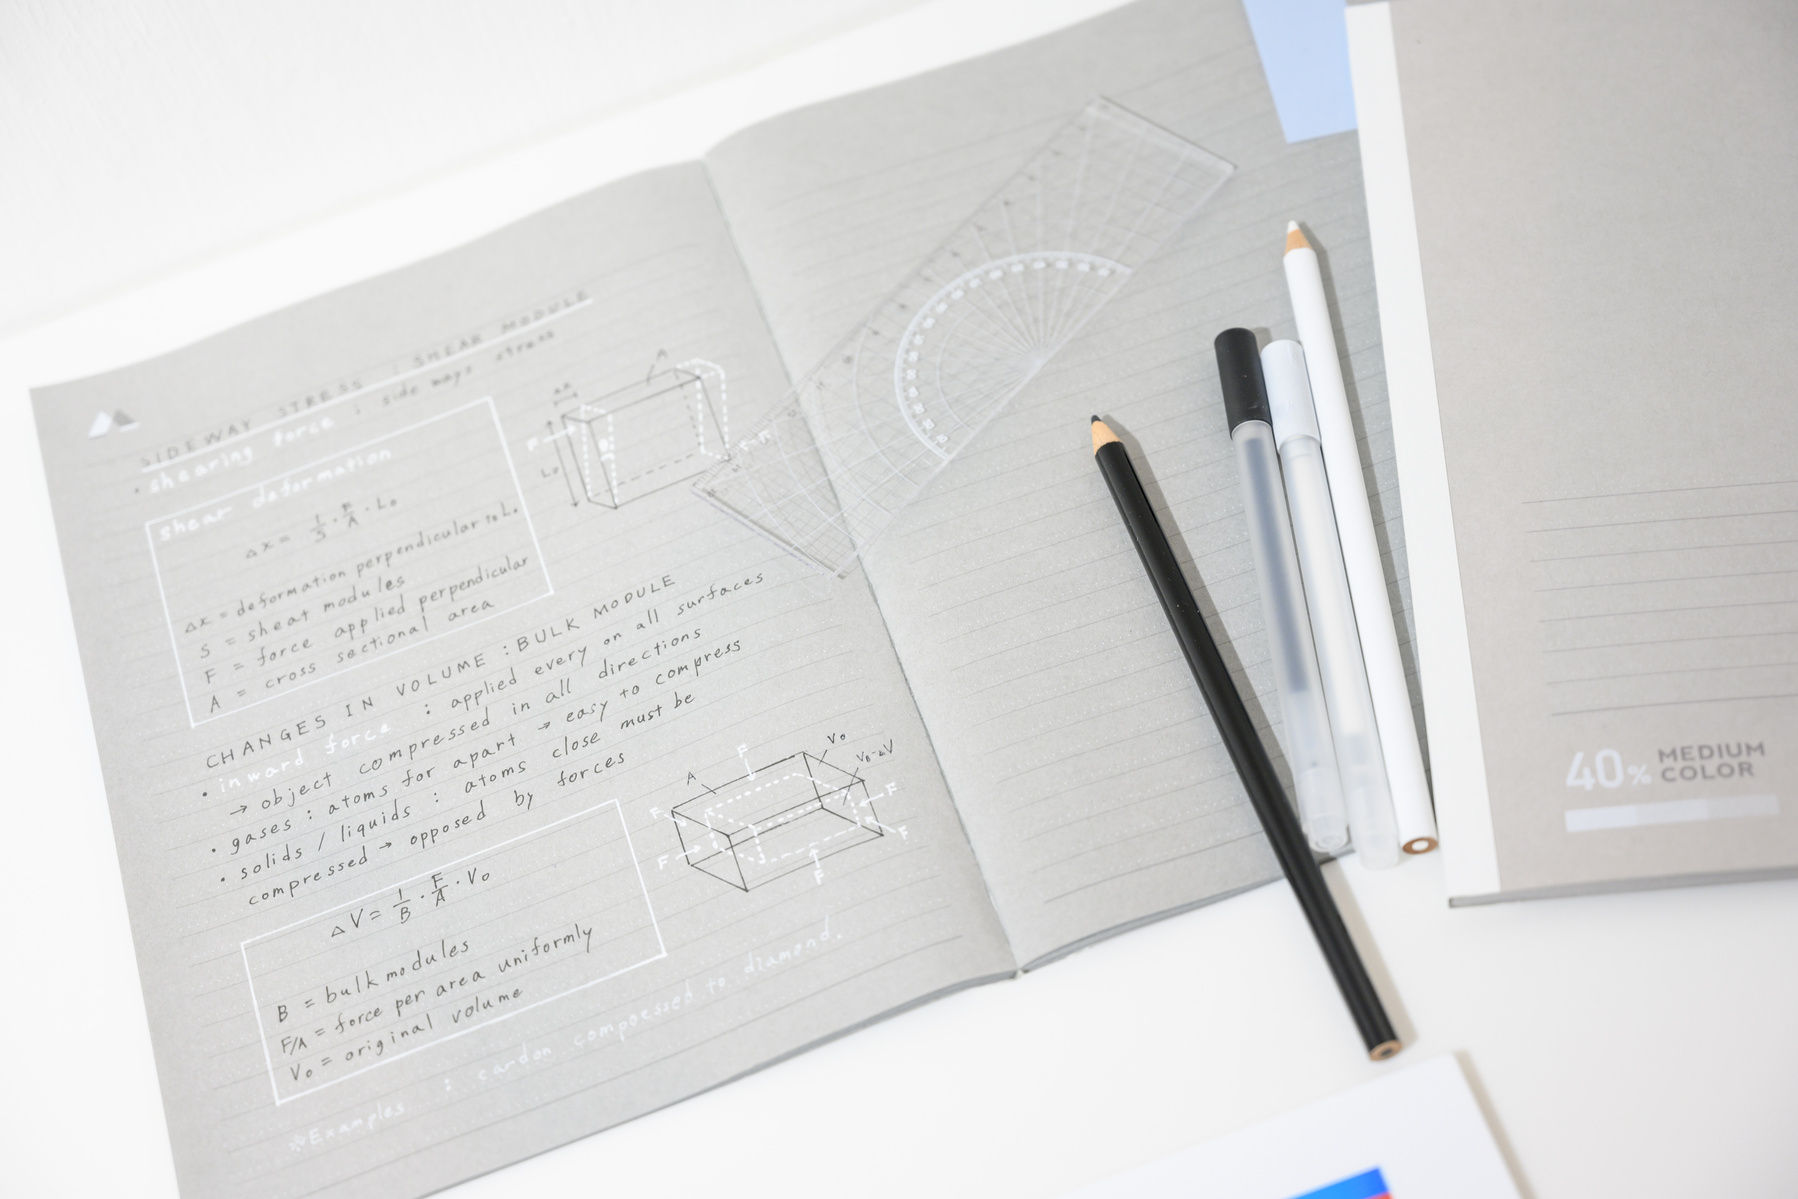 SIDEWAY STRESS : SHEAR MODULE
• shearing force : side ways stress
shear deformation
Δx = 1/S · F/A · L₀
Δx = deformation perpendicular to L₀
S = sheat modules
F = force applied perpendicular
A = cross sectional area
A
Δx
F
L₀
CHANGES IN VOLUME : BULK MODULE
• inward force : applied every on all surfaces
→ object compressed in all directions
• gases : atoms for apart → easy to compress
• solids / liquids : atoms close must be
compressed → opposed by forces
ΔV = 1/B · F/A · V₀
B = bulk modules
F/A = force per area uniformly
V₀ = original volume
A
F
V₀
V₀-ΔV
F
F
F
F
F
※Examples : cardon compoessed to diamond.
40% MEDIUM
COLOR